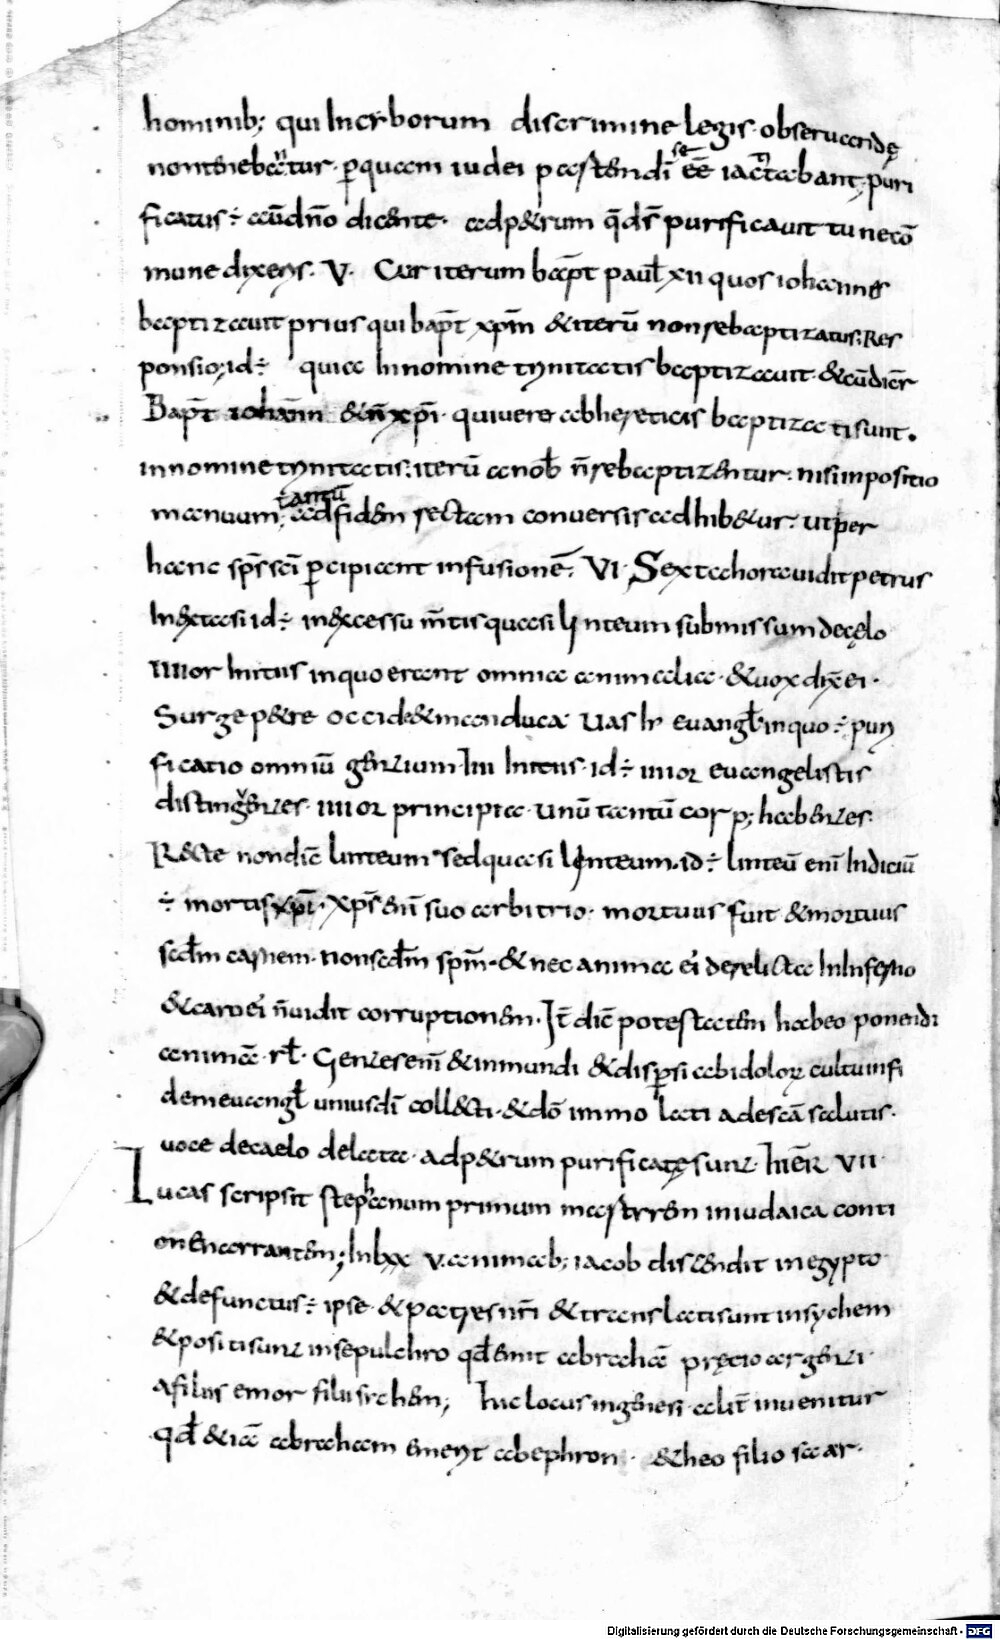 hominib; qui in ciborum discrimine legis obseruandę
non tenebantur · p̱ quam iudei p astendi se eē iactabant; puri
ficatus ÷ aūdnō dicente · ad petrum q̄ ds̄ purificauit tu ne cō
mune dixeris · V · Cur iterum bap̄t paul̄ xii quos iohannes
baptizauit prius qui bap̄t xp̄m & iterū non rebaptizatus; Res
ponsio; id ÷ quia in nomine trinitatis baptizauit · & eūdicēr
Bap̄t iohanni & n̄ xp̄i · qui uero ab hereticis baptizati sunt ·
in nomine trinitatis; iterū a nob̄ n̄ rebaptizentur · nisi inpositio
manuum; tantū ad fidem rectam conuersis adhibetur · ut per
hanc sp̄s sc̄i p̱cipiant infusionē · VI · Sexta hora uidit petrus
in extasi id ÷ in excessu m̄tis quasi linteum submissum de cęlo
iiiior initiis in quo erant omnia animalia · & uox dix̄ ei ·
Surge petre occide & manduca · Uas hr euangl̄ in quo ÷ puri
ficatio omniū gentium · iiii initiis · id ÷ iiiior euangelistis
distinguentes · iiiior principia · unū tantū corp; habentes ·
Recte non dic̄ linteum · sed quasi linteum · id ÷ linteū eni̅ indiciū
÷ mortis xp̄i · xp̄s eni̅ suo arbitrio · mortuus fuit & mortuus
scd̄m carnem · non scd̄m sp̄m · & nec anima ei derelicta in inferno
& caro ei n̄ uidit corruptionem · It̄ dic̄ potestatem habeo ponendi
animā · rl̄ · Gentes eni̅ & inmundi & disp̱si ab idolor̄ cultu in fi
dem euangl̄ unius dī collecti · & dō immolati ad escā salutis ·
uoce de caelo delata · ad petrum purificatę sunt · Iter̄ VII ·
Lucas scripsit stephanum primum mastrrem in iudaica conti
onen arrantem; In lxx v · animab; iacob discendit in egypto
& defunctus ÷ ipse · & patres nr̄i & translati sunt in sychem
& positi sunt in sepulchro qd̄ emit abrahā prętio argenti ·
a filiis emor filii sichem; hic locus in genesi · alit̄ inuenitur
qd̄ & iā abraham emerit ab ephron · & heo filio saar ·
Digitalisierung gefördert durch die Deutsche Forschungsgemeinschaft - DFG